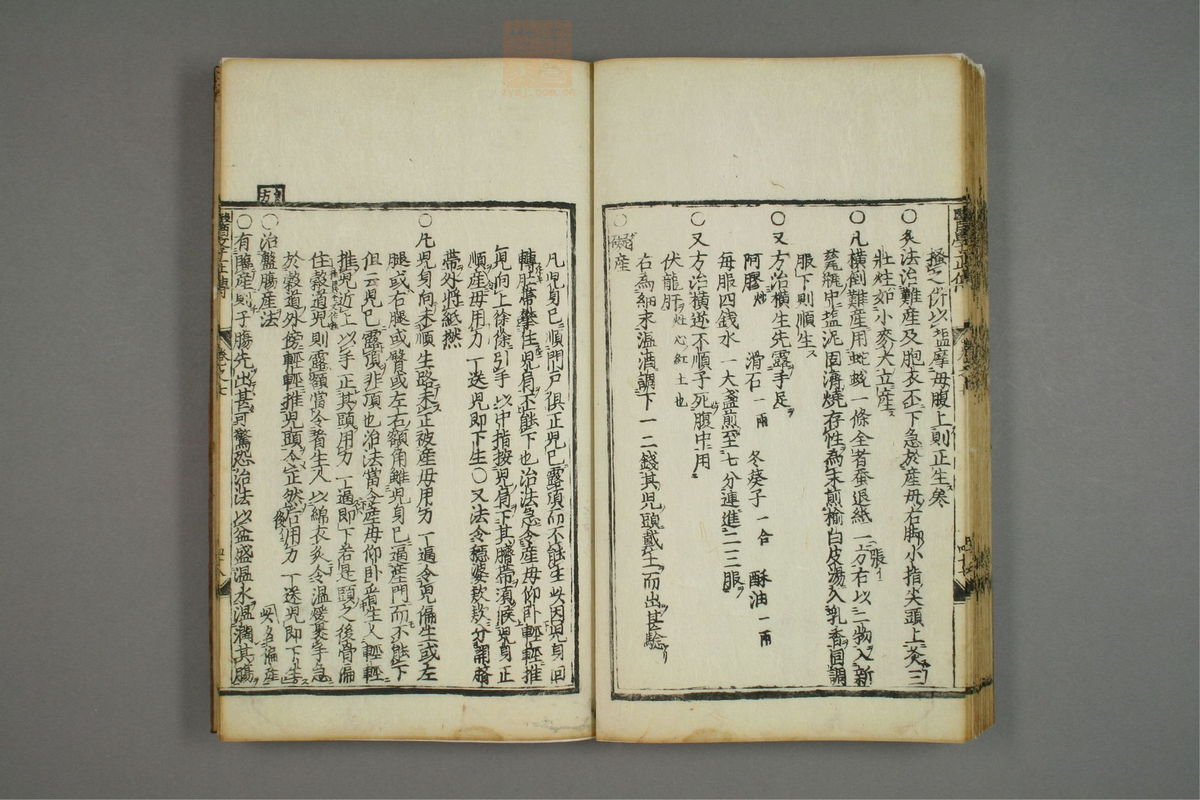 擦之仍以塩摩母腹上則正生矣
〇灸法治難産及胞衣不下急於産母右脚小指尖頭上灸三
壯炷如小麥大立産
〇凡横倒難産用蛇蛻一條全者蚕退紙一方右以二物入新
甕中塩泥固濟燒存性為末煎楡白皮湯入乳香同調
服下則順生
〇又方治横生先露手足
阿膠炒 滑石一兩 冬葵子一合 酥油一兩
毎服四錢水一大盞煎至七分連進二三服
〇又方治横逆不順子死腹中用
伏龍肝竈心紅土也
右為細末温酒調下一二錢其児頭戴土而出甚驗
〇碍産
凡児身已順門戸俱正児已露頂而不能生此因児身回
轉肚帶攀住児肩不能下也治法急令産母仰卧輕輕推
児向上徐徐引手以中指按児肩下其臍帶須候児身正
順産母用力一送児即下生〇又法令穩婆款款分開臍
帶外將紙撚
〇凡児身向未順生路未正被産母用力一逼令児偏生或左
腿或右腿或臂或左右額角離児身已逼産門而不能下
但云児已露頂非頂也治法當令産母仰卧看生人輕輕
推児近上以手正其頭用力一逼即下若是頭之後骨偏
住穀道児則露額當令看生人以綿衣炙令温煖裹手急
於穀道外傍輕輕推児頭令正然後用力一送児即下生
〇治盤膓産法 此名偏産
〇有臨産則子膓先出甚可驚恐治法以盆盛温水温潤其膓